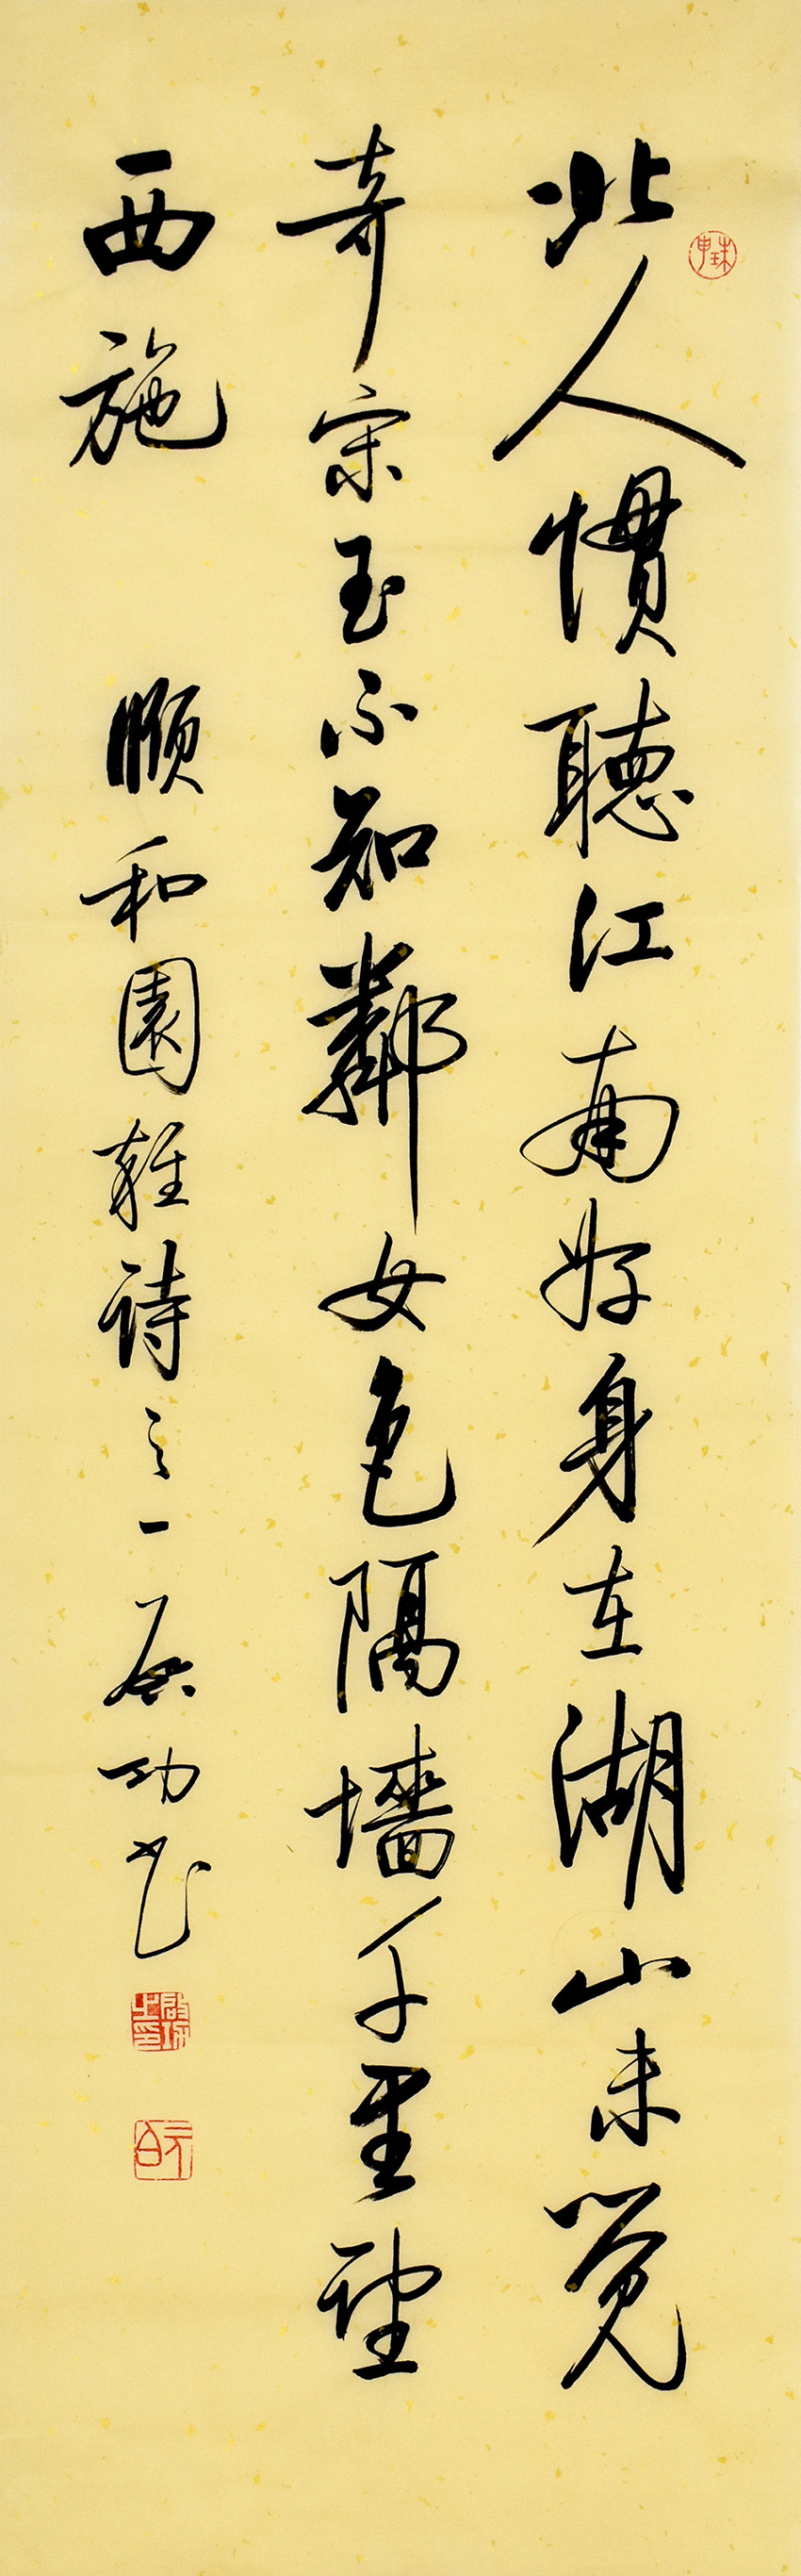 北人惯聽江南好身在湖山未觉
奇宋玉不知鄰女色隔墙千里望
西施
顺和園雜诗之一启功书